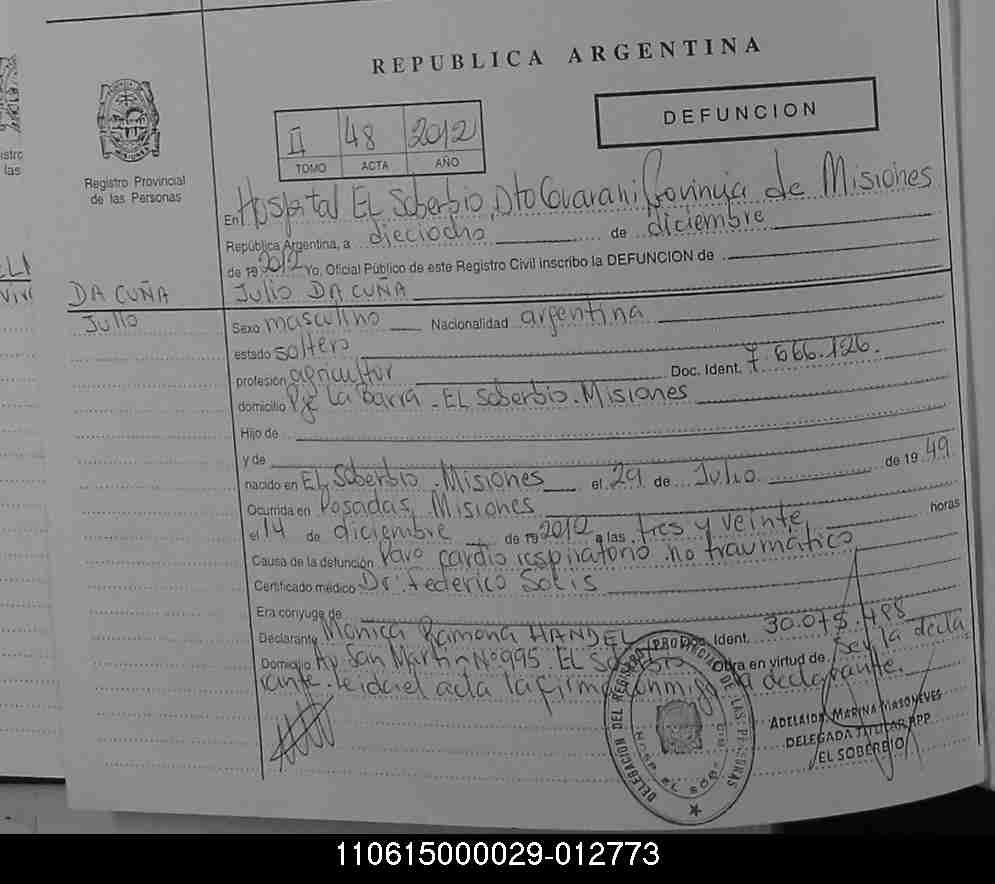 REPUBLICA ARGENTINA
DEFUNCION
II 48 2012
TOMO ACTA AÑO
Registro Provincial
de las Personas
En Hospital EL Soberbio, Dto Guarani Provincia de Misiones
República Argentina, a dieciocho de diciembre
de 19 2012 Yo, Oficial Público de este Registro Civil inscribo la DEFUNCION de
DA CUÑA
Julio
Julio DA CUÑA
Sexo masculino Nacionalidad argentina
estado soltero
profesión agricultor Doc. Ident. 7.666.126.
domicilio Pje La Barra - EL Soberbio. Misiones
Hijo de
y de
nacido en EL Soberbio - Misiones el 29 de Julio de 19 49
Ocurrida en Posadas, Misiones
el 14 de diciembre de 19 2012 a las tres y veinte horas
Causa de la defunción Paro cardio respiratorio no traumático
Certificado médico Dr: Federico Solis
Era conyuge de
Declarante Monica Ramona HANDEL Doc. Ident. 30.075.498
Domicilio Av San Martin Nº 995 - EL Soberbio Obra en virtud de ser la decla
rante. leida el acta la firma conmigo la declarante.
DELEGACION DEL REGISTRO PROVINCIAL DE LAS PERSONAS
ADELAIDA MARINA MASONEVES
DELEGADA TITULAR RPP
EL SOBERBIO
110615000029-012773